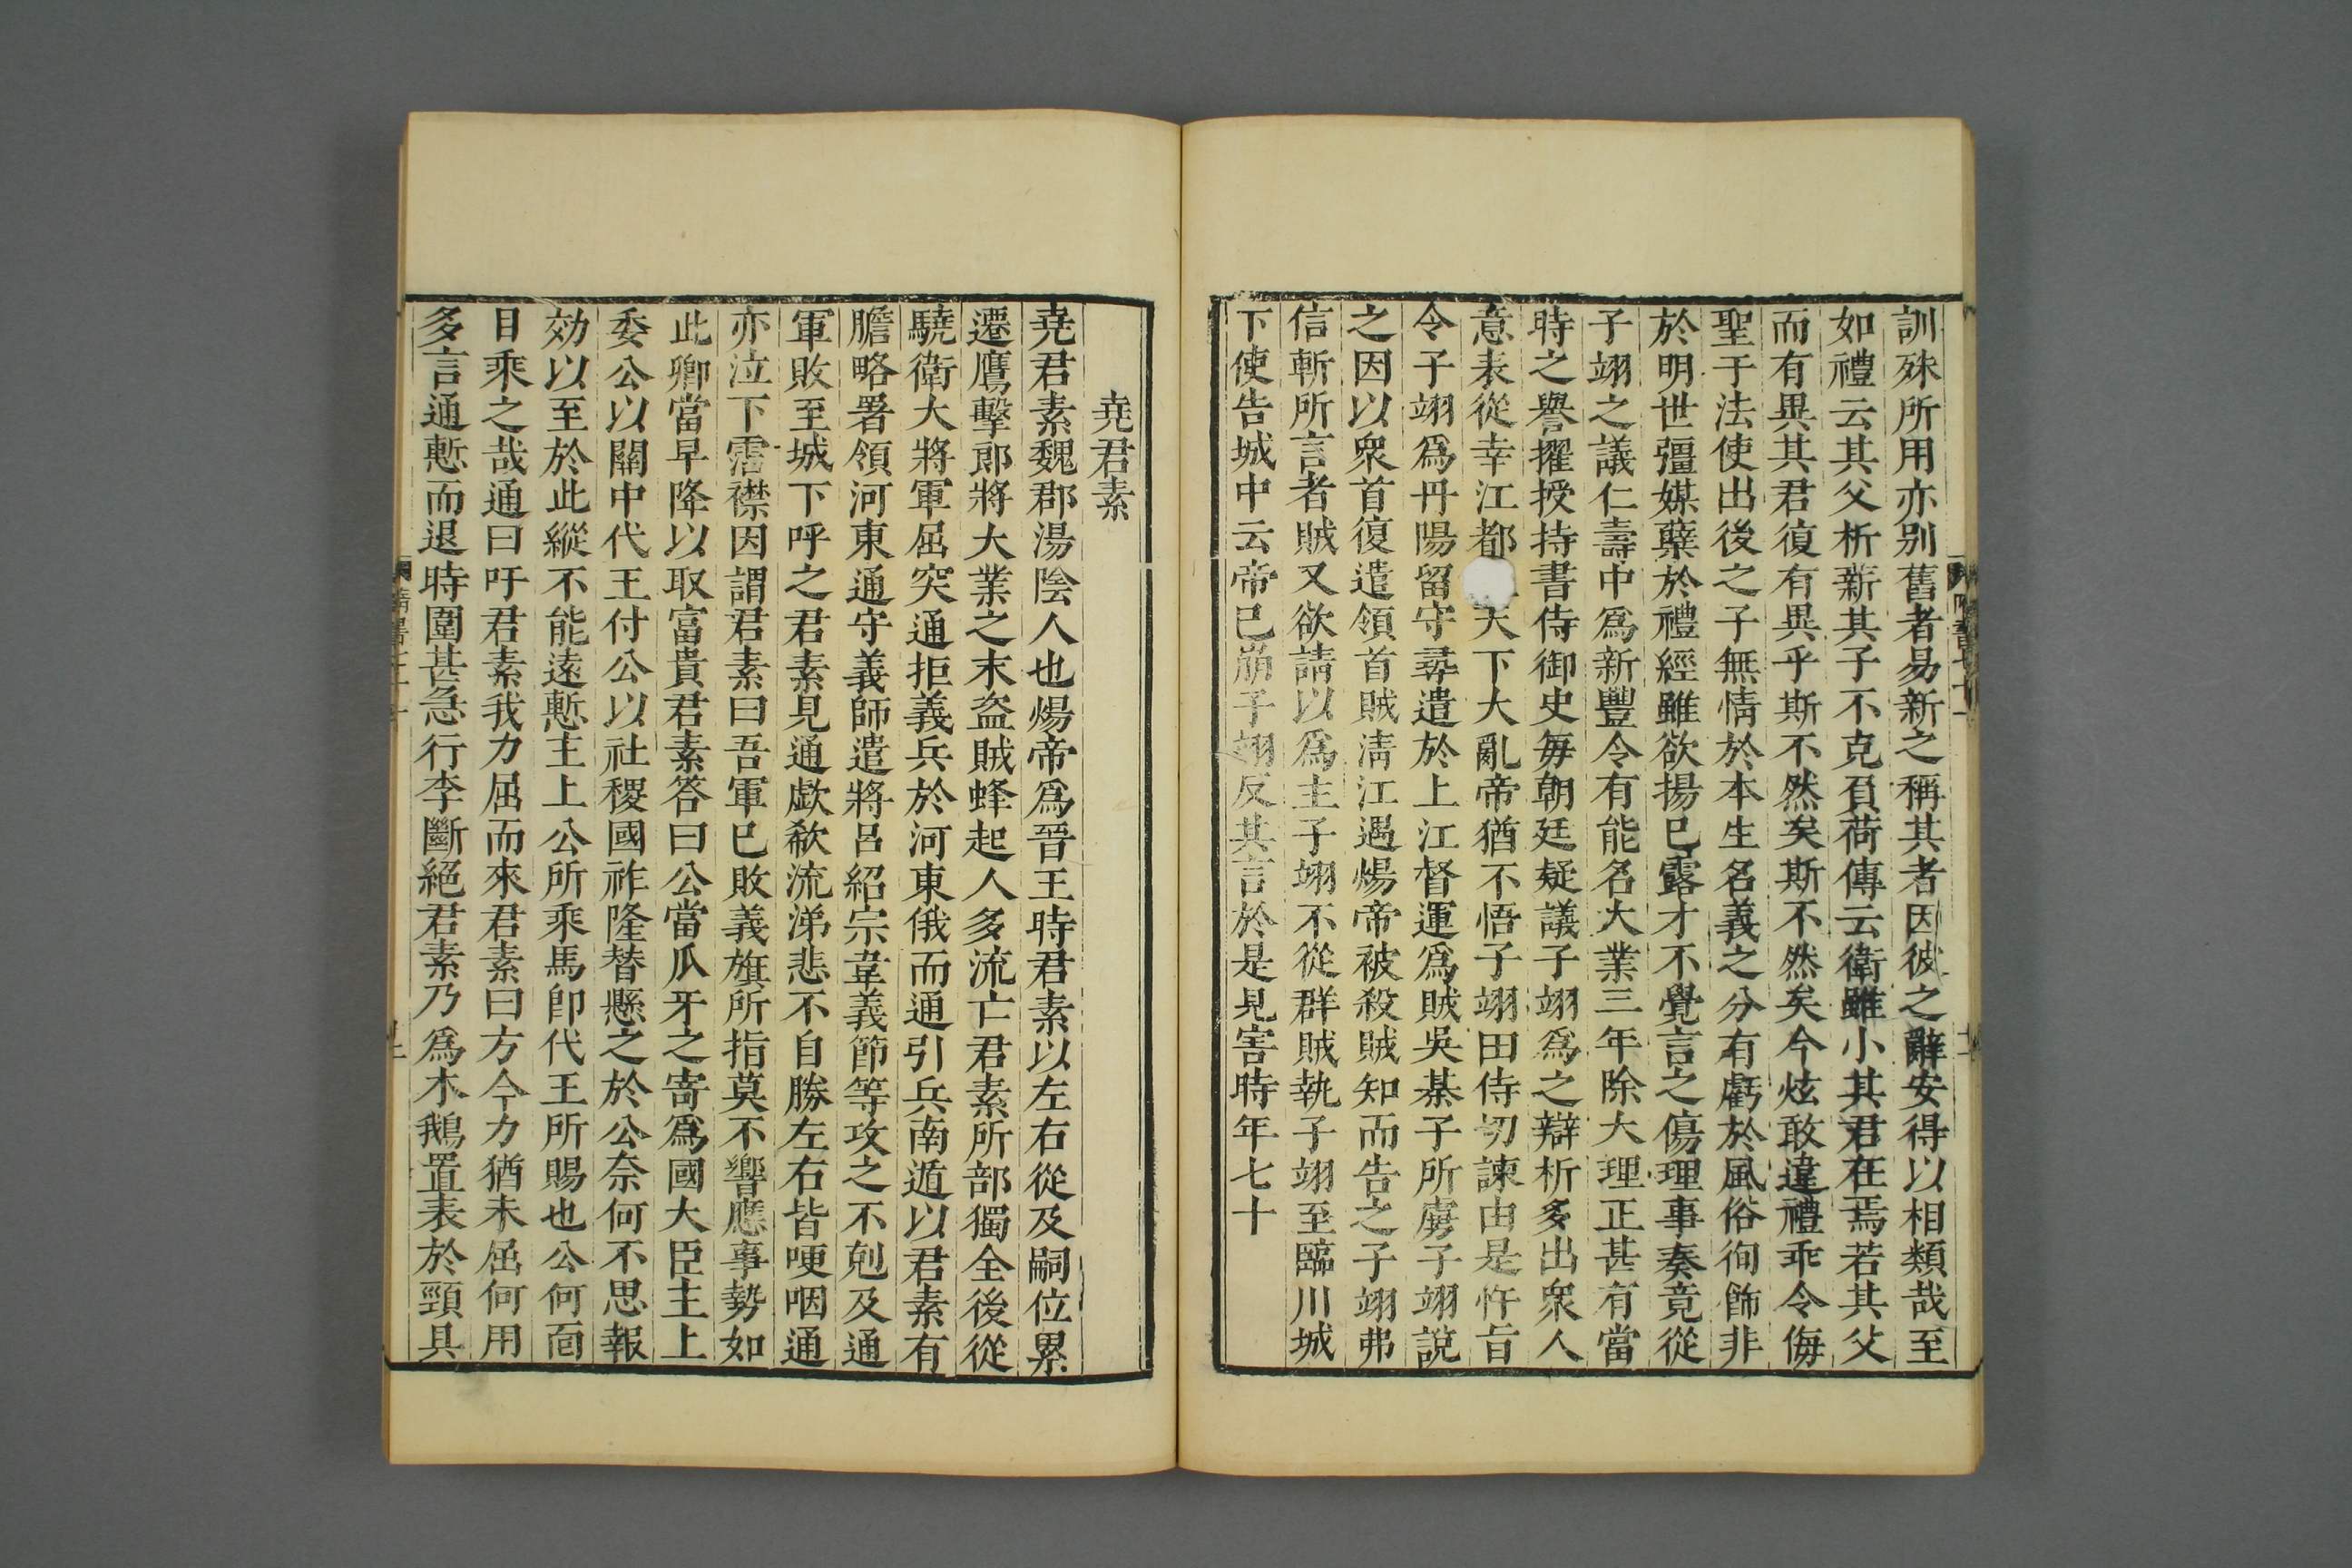 訓殊所用亦別舊者易新之稱其者因彼之辭安得以相類哉至
如禮云其父析薪其子不克負荷傳云衛雖小其君在焉若其父
而有異其君復有異乎斯不然矣斯不然矣今炫敢違禮乖令侮
聖干法使出後之子無情於本生名義之分有虧於風俗徇飾非
於明世彊媒蘖於禮經雖欲揚已露才不覺言之傷理事奏竟從
子翊之議仁壽中爲新豐令有能名大業三年除大理正甚有當
時之譽擢授持書侍御史每朝廷疑議子翊爲之辯析多出衆人
意表從幸江都天下大亂帝猶不悟子翊因侍切諫由是忤旨
令子翊爲丹陽留守尋遣於上江督運爲賊吳棊子所虜子翊說
之因以衆首復遣領首賊淸江遇煬帝被殺賊知而告之子翊弗
信斬所言者賊又欲請以爲主子翊不從群賊執子翊至臨川城
下使告城中云帝已崩子翊反其言於是見害時年七十
堯君素
堯君素魏郡湯陰人也煬帝爲晉王時君素以左右從及嗣位累
遷鷹擊郎將大業之末盜賊蜂起人多流亡君素所部獨全後從
驍衛大將軍屈突通拒義兵於河東俄而通引兵南遁以君素有
膽略署領河東通守義師遣將呂紹宗韋義節等攻之不剋及通
軍敗至城下呼之君素見通歔欷流涕悲不自勝左右皆哽咽通
亦泣下霑襟因謂君素曰吾軍已敗義旗所指莫不響應事勢如
此卿當早降以取富貴君素答曰公當爪牙之寄爲國大臣主上
委公以關中代王付公以社稷國祚隆替懸之於公奈何不思報
効以至於此縱不能遠慙主上公所乘馬卽代王所賜也公何面
目乘之哉通曰吁君素我力屈而來君素曰方今力猶未屈何用
多言通慙而退時圍甚急行李斷絕君素乃爲木鵝置表於頸具